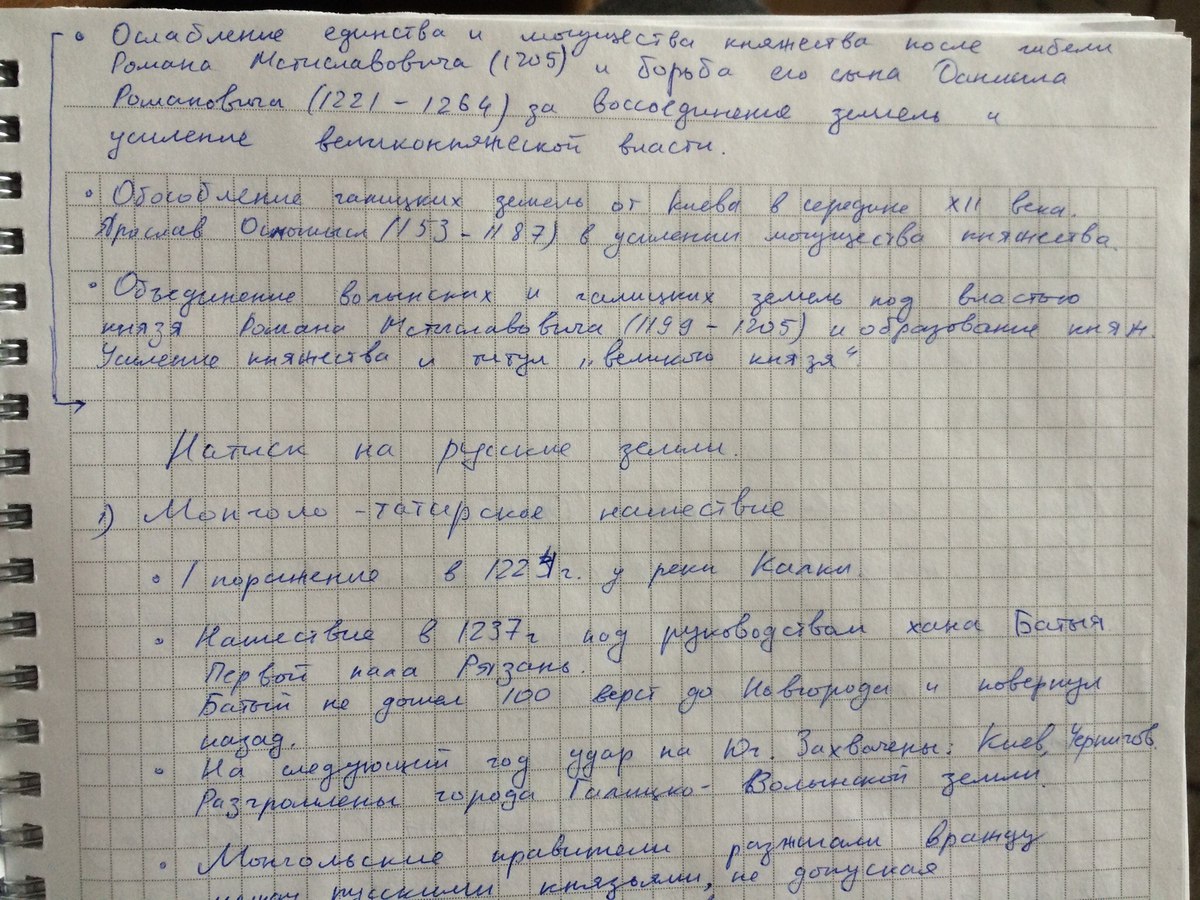 • Ослабление единства и могущества княжества после гибели
Романа Мстиславовича (1205) и борьба его сына Даниила
Романовича (1221 - 1264) за воссоединение земель и
усиление великокняжеской власти.
• Обособление галицких земель от Киева в середине XII века.
Ярослав Осмомысл (1153 - 1187) в усилении могущества княжества.
• Объединение волынских и галицких земель под властью
князя Романа Мстиславовича (1199 - 1205) и образование княж.
Усиление княжества и титул „великого князя“.
Натиск на русские земли.
1) Монголо - татарское нашествие
• 1 поражение в 1224г. у реки Калки.
• Нашествие в 1237г под руководством хана Батыя
Первой пала Рязань.
Батый не дошел 100 верст до Новгорода и повернул
назад.
• На следующий год удар на Юг. Захвачены: Киев, Чернигов.
Разгромлены города Галицко - Волынской земли.
• Монгольские правители разжигали вражду
между русскими князьями, не допуская